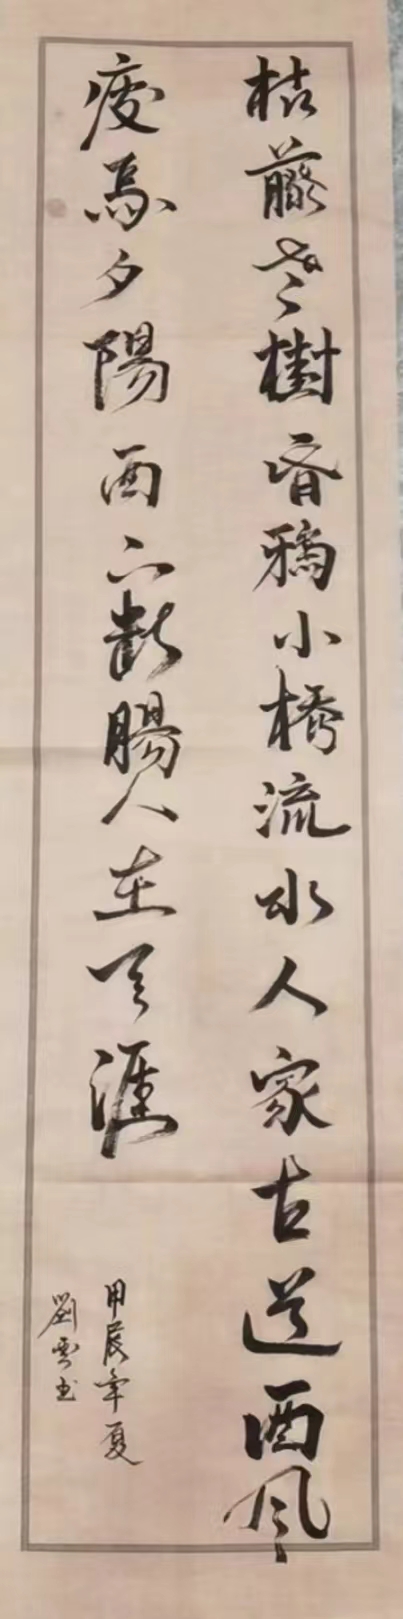 枯藤老樹昏鴉小橋流水人家古道西風
瘦馬夕陽西下斷腸人在天涯
甲辰年夏
劉雲书